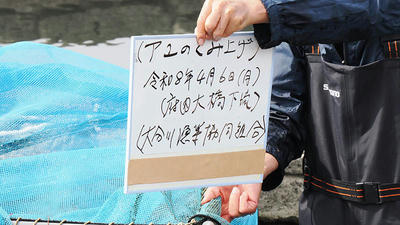 (アユのくみ上げ)
令和8年4月6日(月)
(府内大橋下流)
(大分川漁業協同組合)